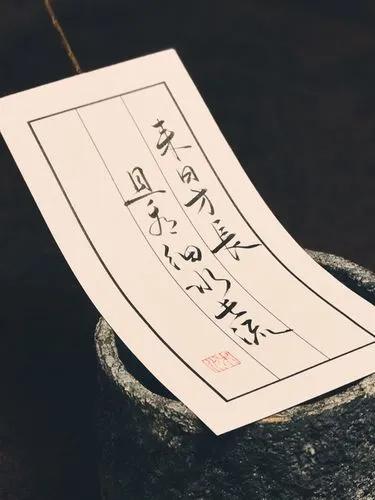 来日方長
且看细水长流